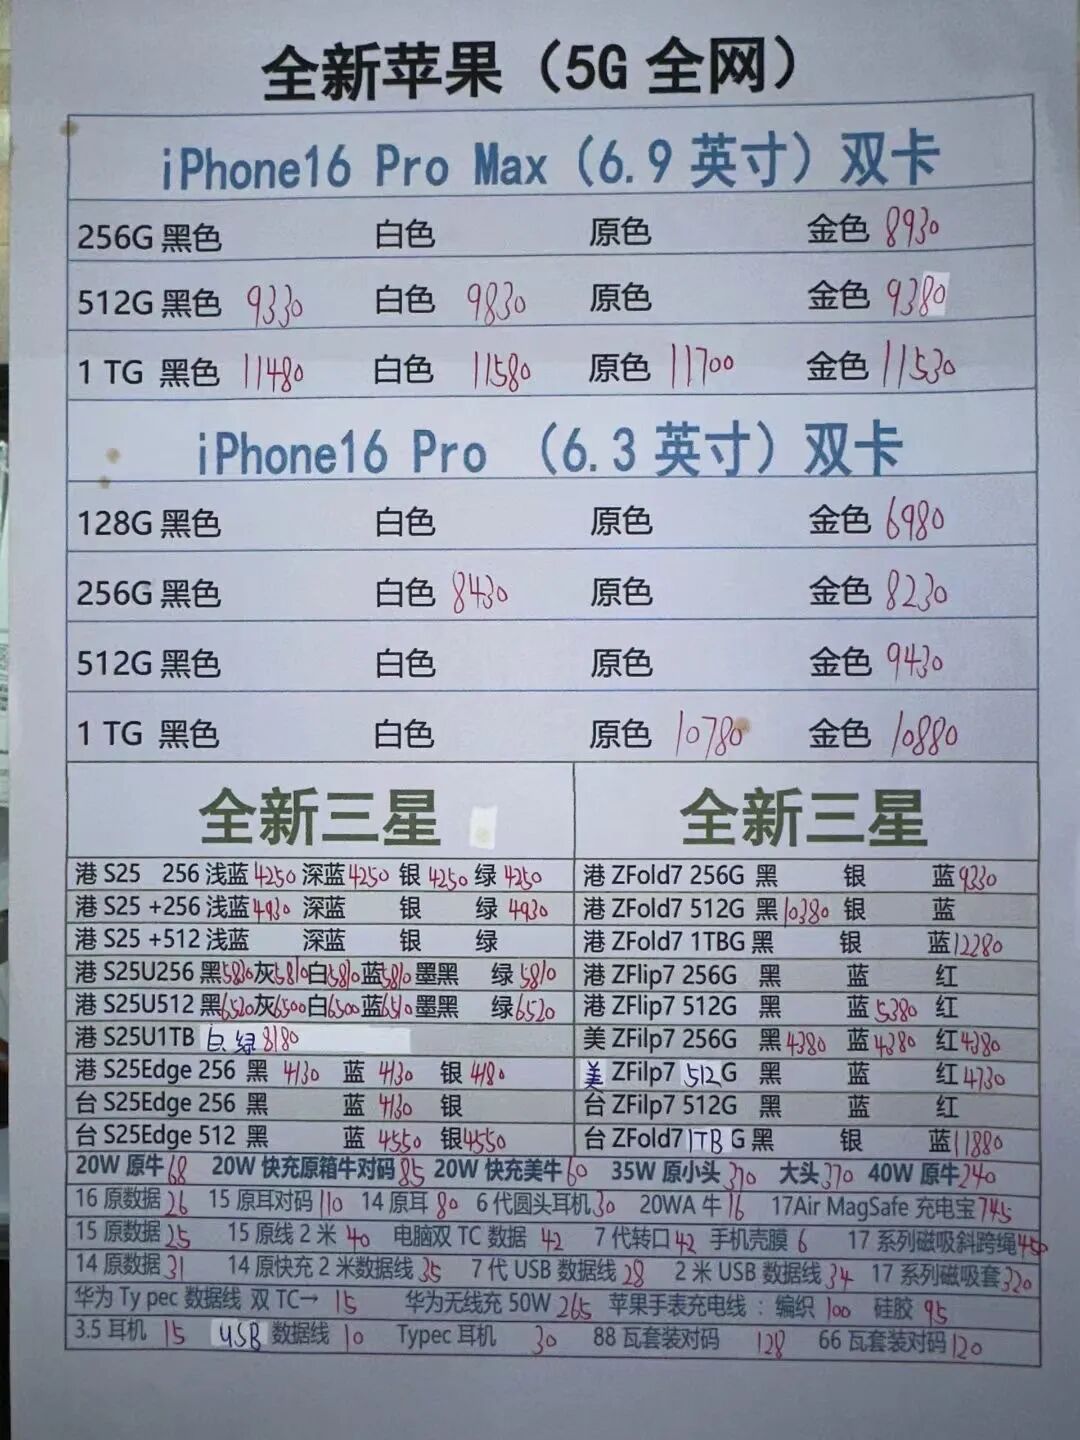 全新苹果（5G 全网）
iPhone16 Pro Max（6.9 英寸）双卡
256G 黑色 白色 原色 金色 8930
512G 黑色 9330 白色 9830 原色 金色 9380
1 TG 黑色 11480 白色 11580 原色 11700 金色 11530
iPhone16 Pro （6.3 英寸）双卡
128G 黑色 白色 原色 金色 6980
256G 黑色 白色 8430 原色 金色 8230
512G 黑色 白色 原色 金色 9430
1 TG 黑色 白色 原色 10780 金色 10880
全新三星
港 S25 256 浅蓝 4250 深蓝 4250 银 4250 绿 4250
港 S25 +256 浅蓝 4930 深蓝 银 绿 4930
港 S25 +512 浅蓝 深蓝 银 绿
港 S25U256 黑5810灰5810白5810蓝5810墨黑 绿 5810
港 S25U512 黑6520灰6500白6500蓝6510墨黑 绿6520
港 S25U1TB 白 绿 8180
港 S25Edge 256 黑 4130 蓝 4130 银 4180
台 S25Edge 256 黑 蓝 4130 银
台 S25Edge 512 黑 蓝 4550 银4550
全新三星
港 ZFold7 256G 黑 银 蓝9330
港 ZFold7 512G 黑10380 银 蓝
港 ZFold7 1TBG 黑 银 蓝12280
港 ZFlip7 256G 黑 蓝 红
港 ZFlip7 512G 黑 蓝 5380 红
美 ZFilp7 256G 黑 4380 蓝 4380 红4380
美 ZFilp7 512G 黑 蓝 红4730
台 ZFilp7 512G 黑 蓝 红
台 ZFold7 1TB G 黑 银 蓝11880
20W 原牛 68 20W 快充原箱牛对码 85 20W 快充美牛 60 35W 原小头 370 大头 370 40W 原牛 240
16 原数据 26 15 原耳对码 110 14 原耳 80 6 代圆头耳机 30 20WA 牛 16 17Air MagSafe 充电宝 745
15 原数据 25 15 原线 2 米 40 电脑双 TC 数据 42 7 代转口 42 手机壳膜 6 17 系列磁吸斜跨绳 450
14 原数据 31 14 原快充 2 米数据线 35 7 代 USB 数据线 28 2 米 USB 数据线 34 17 系列磁吸套 320
华为 Ty pec 数据线 双 TC→ 15 华为无线充 50W 265 苹果手表充电线 ：编织 100 硅胶 95
3.5 耳机 15 USB 数据线 10 Typec 耳机 30 88 瓦套装对码 128 66 瓦套装对码 120